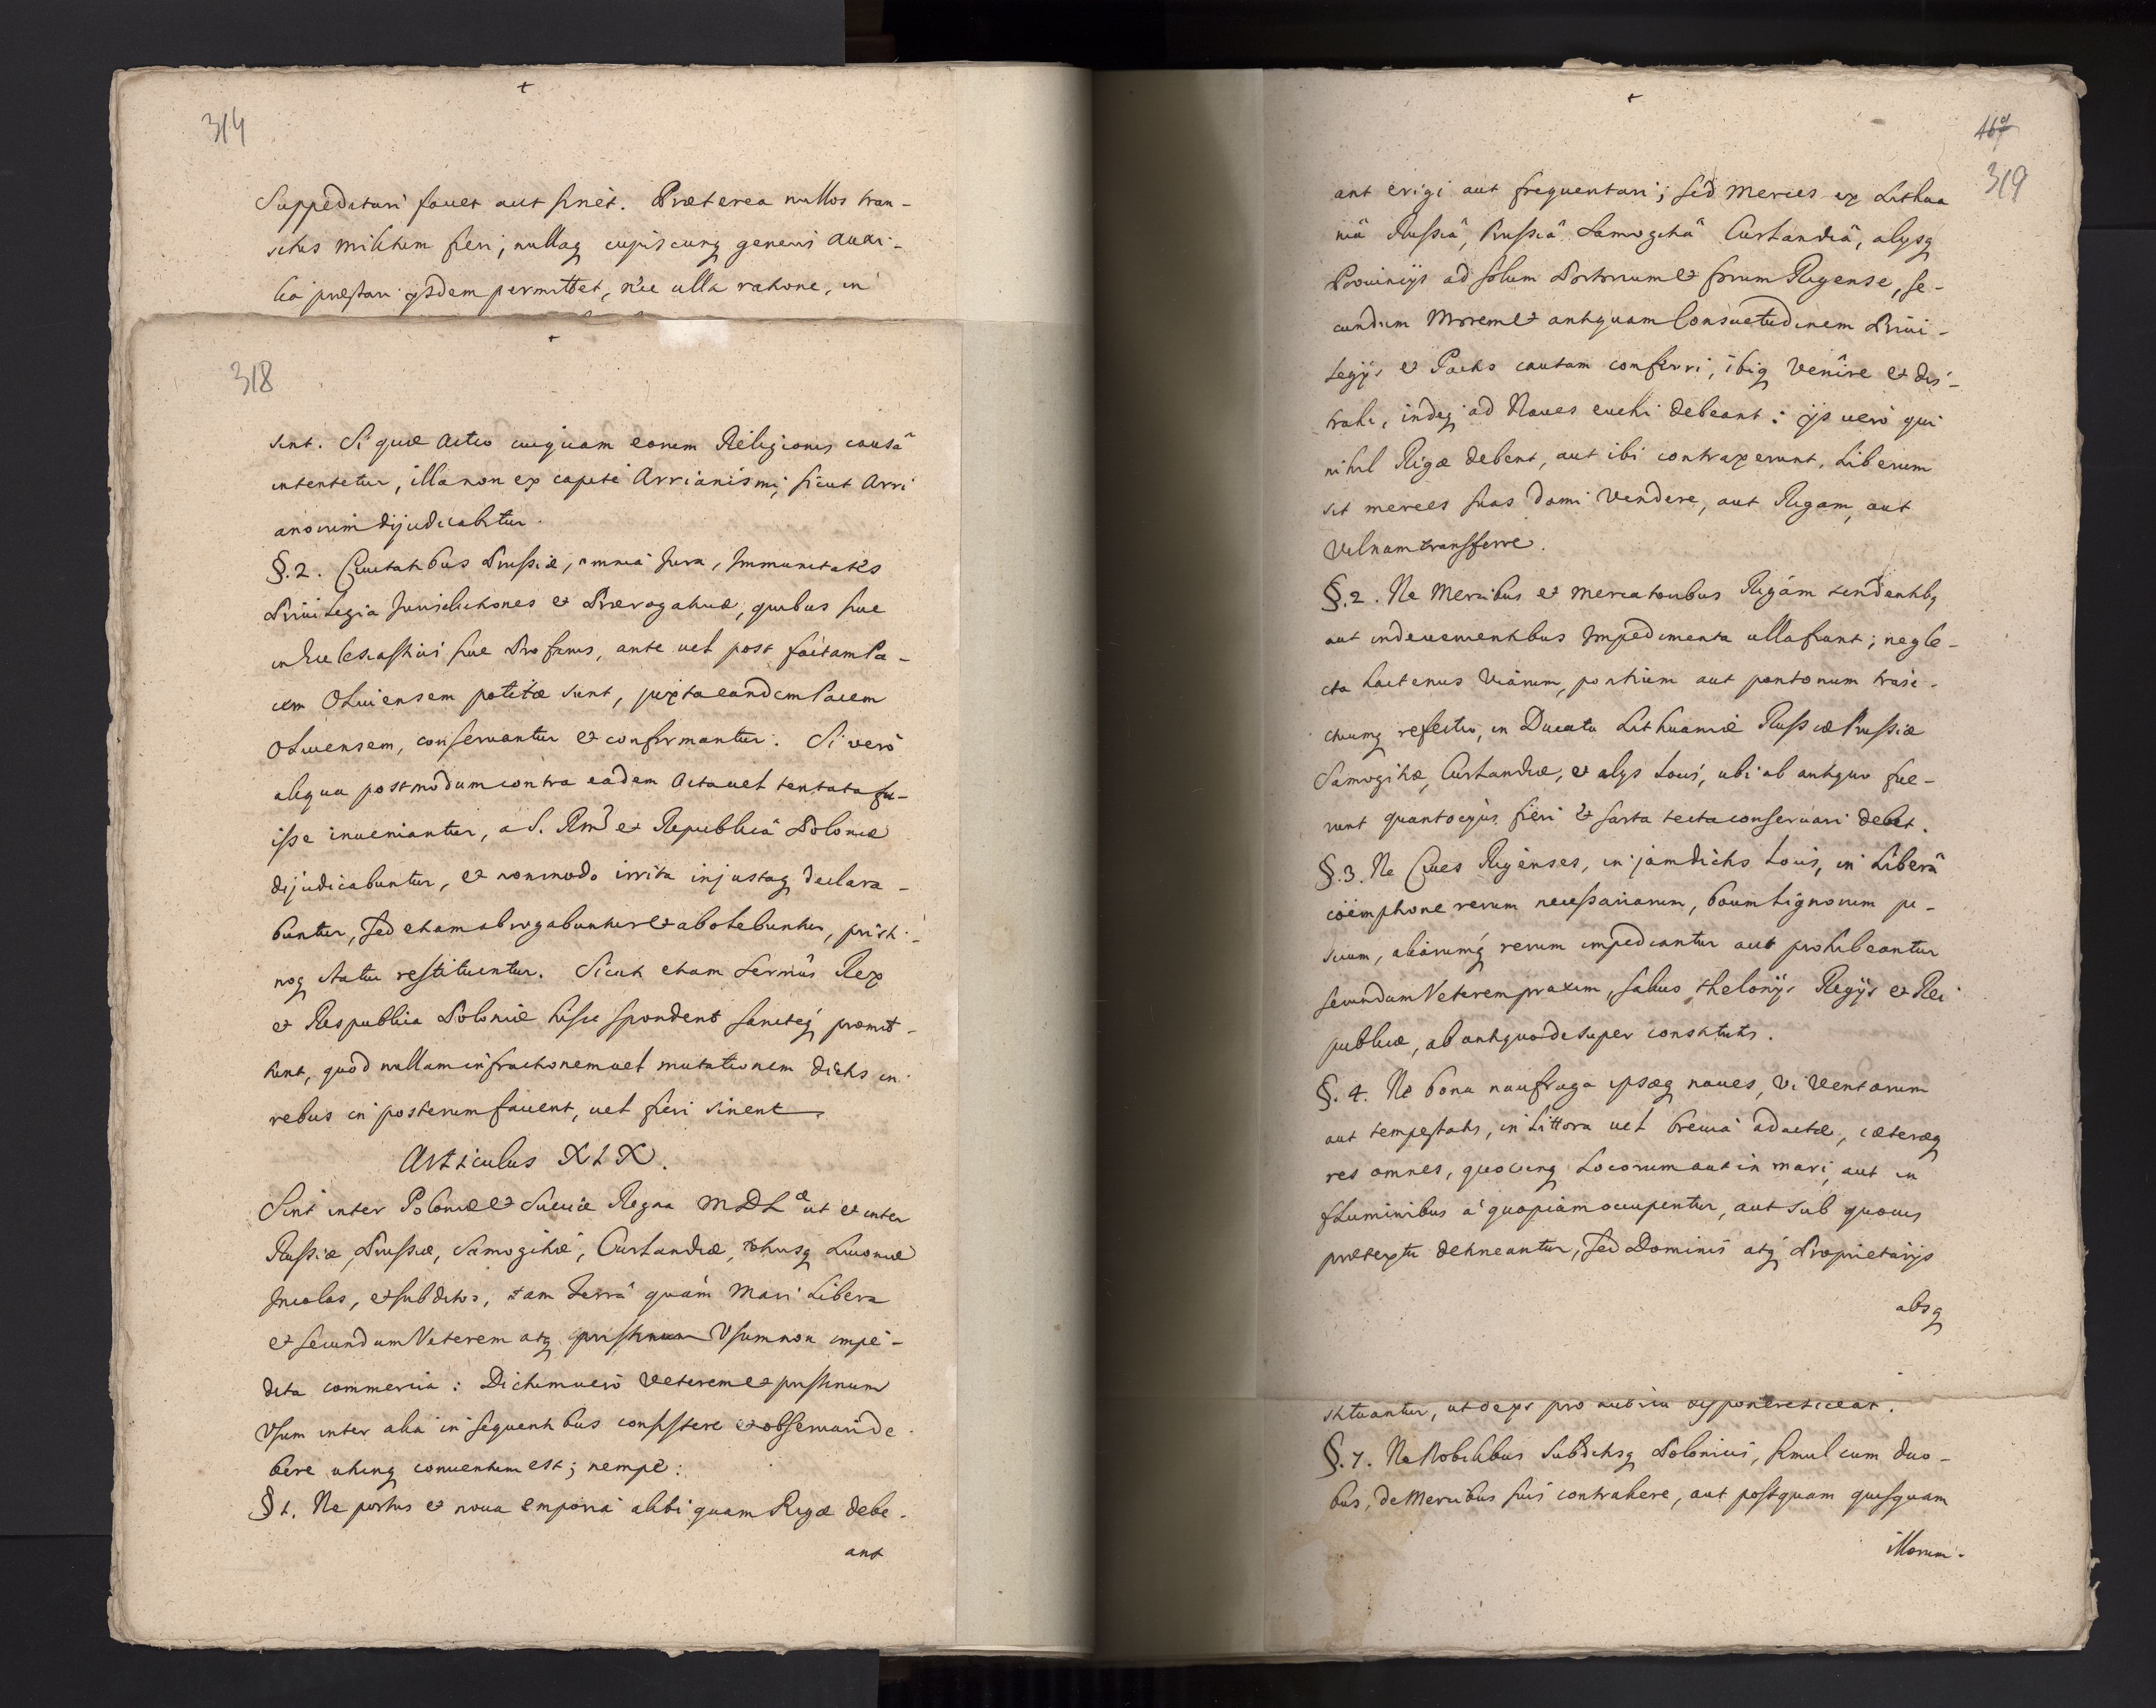 314
Suppeditari faciet aut sinet. Præterea nullos tran-
situs militum fieri, nullaq cujuscunq generis auxi-
lia præstari ijsdem permittet, siue ulla ratione, in
318
sint. Si quæ actio cuiquam eorum Religionis causâ
intentetur, illa non ex capite Arrianismi, sicut Arri
anorum dijudicabitur.
§.2. Ciuitatibus Prussiæ, omnia Jura, Immunitates
Priuilegia Jurisdictiones et Prærogatiuæ, quibus siue
in Ecclesiasticis siue Profanis, ante uel post factam Pa-
cem Oliuiensem potitæ sunt, juxta eandem Pacem
Oliuensem, conseruantur et confirmantur. Si verò
aliqua postmodum contra eadem acta uel tentata fu-
isse inueniantur, a S. Rm et Republicâ Poloniæ
dijudicabuntur, et non modo irrita injustaq declara-
buntur, sed etiam abrogabuntur et abolebuntur, pristi-
noq statui restituentur. Sicuti etiam Sermus Rex
et Respublica Poloniæ hisce spondent sanctéq promit-
tunt, quod nullam infractionem uel mutationem dictis in
rebus in posterum facient, uel fieri sinent.
Articulus XLX.
Sint inter Poloniæ et Sueciæ Regna MDL æ ut et inter
Russiæ, Prussiæ, Samogitiæ, Curlandiæ, totiusq Liuoniæ
Incolas, et subditos, tam terrâ quám mari libera
et secundum Veterem atq pristinum Vsum non impe-
dita commercia: Dictum uerò Veterem et pristinum
Vsum inter alia in sequentibus consistere et obseruari de
bere utrinq conuentum est; nempe:
§ 1. Ne portus et noua emporia alibi quam Rigæ debe-
ant
467
319
ant erigi aut frequentari; sed merces ex Lithua
niâ Russiâ, Prussiâ Samogitiâ Curlandiâ, alijsq
Prouincijs ad solum Portorium et forum Rigense, se-
cundum Morem et antiquam Consuetudinem Priui-
legijs et Pactis cautam conferri, ibiq venire et dis-
trahi, indeq ad Naues euehi debeant: ijs verò qui
nihil Rigæ debent, aut ibi contraxerunt, Liberum
sit merces suas domi Vendere, aut Rigam, aut
Vilnam transferre.
§.2. Ne mercibus et mercatoribus Rigám tendentibq
aut inde uenientibus Impedimenta ulla fiant; negle-
cta hactenus Viarum, pontium aut pontonum traie-
ctuumq refectio, in Ducatu Lithuaniæ Russiæ Prussiæ
Samogitiæ, Curlandiæ, et alijs locis, ubi ab antiquo fue-
runt quantocyùs fieri et sarta tecta conseruari debet.
§.3. Ne Ciues Rigénses, in jam dictis locis, in Liberâ
coëmptione rerum necessariarum, boum lignorum pi-
scium, aliarumq rerum impediantur aut prohibeantur
secundum Veterem praxim, saluis thelonijs Regijs et Rei
publicæ, ab antiquo desuper constitutis.
§. 4. Ne bona naufraga ipsæq naues, vi ventorum
aut tempestatis, in Littora uel breuia adactæ, cæteræq
res omnes, quocunq Locorum aut in mari, aut in
fluminibus à quopiam occupentur, aut sub quouis
prætextu detineantur, sed Dominis atq Proprietarijs
absq
stituantur, ut de ijs pro
§.7. Ne Nobilibus Subditisq Polonicis, simul cum duo-
bus, de Mercibus suis contrahere, aut postquam quisquam
illorum-